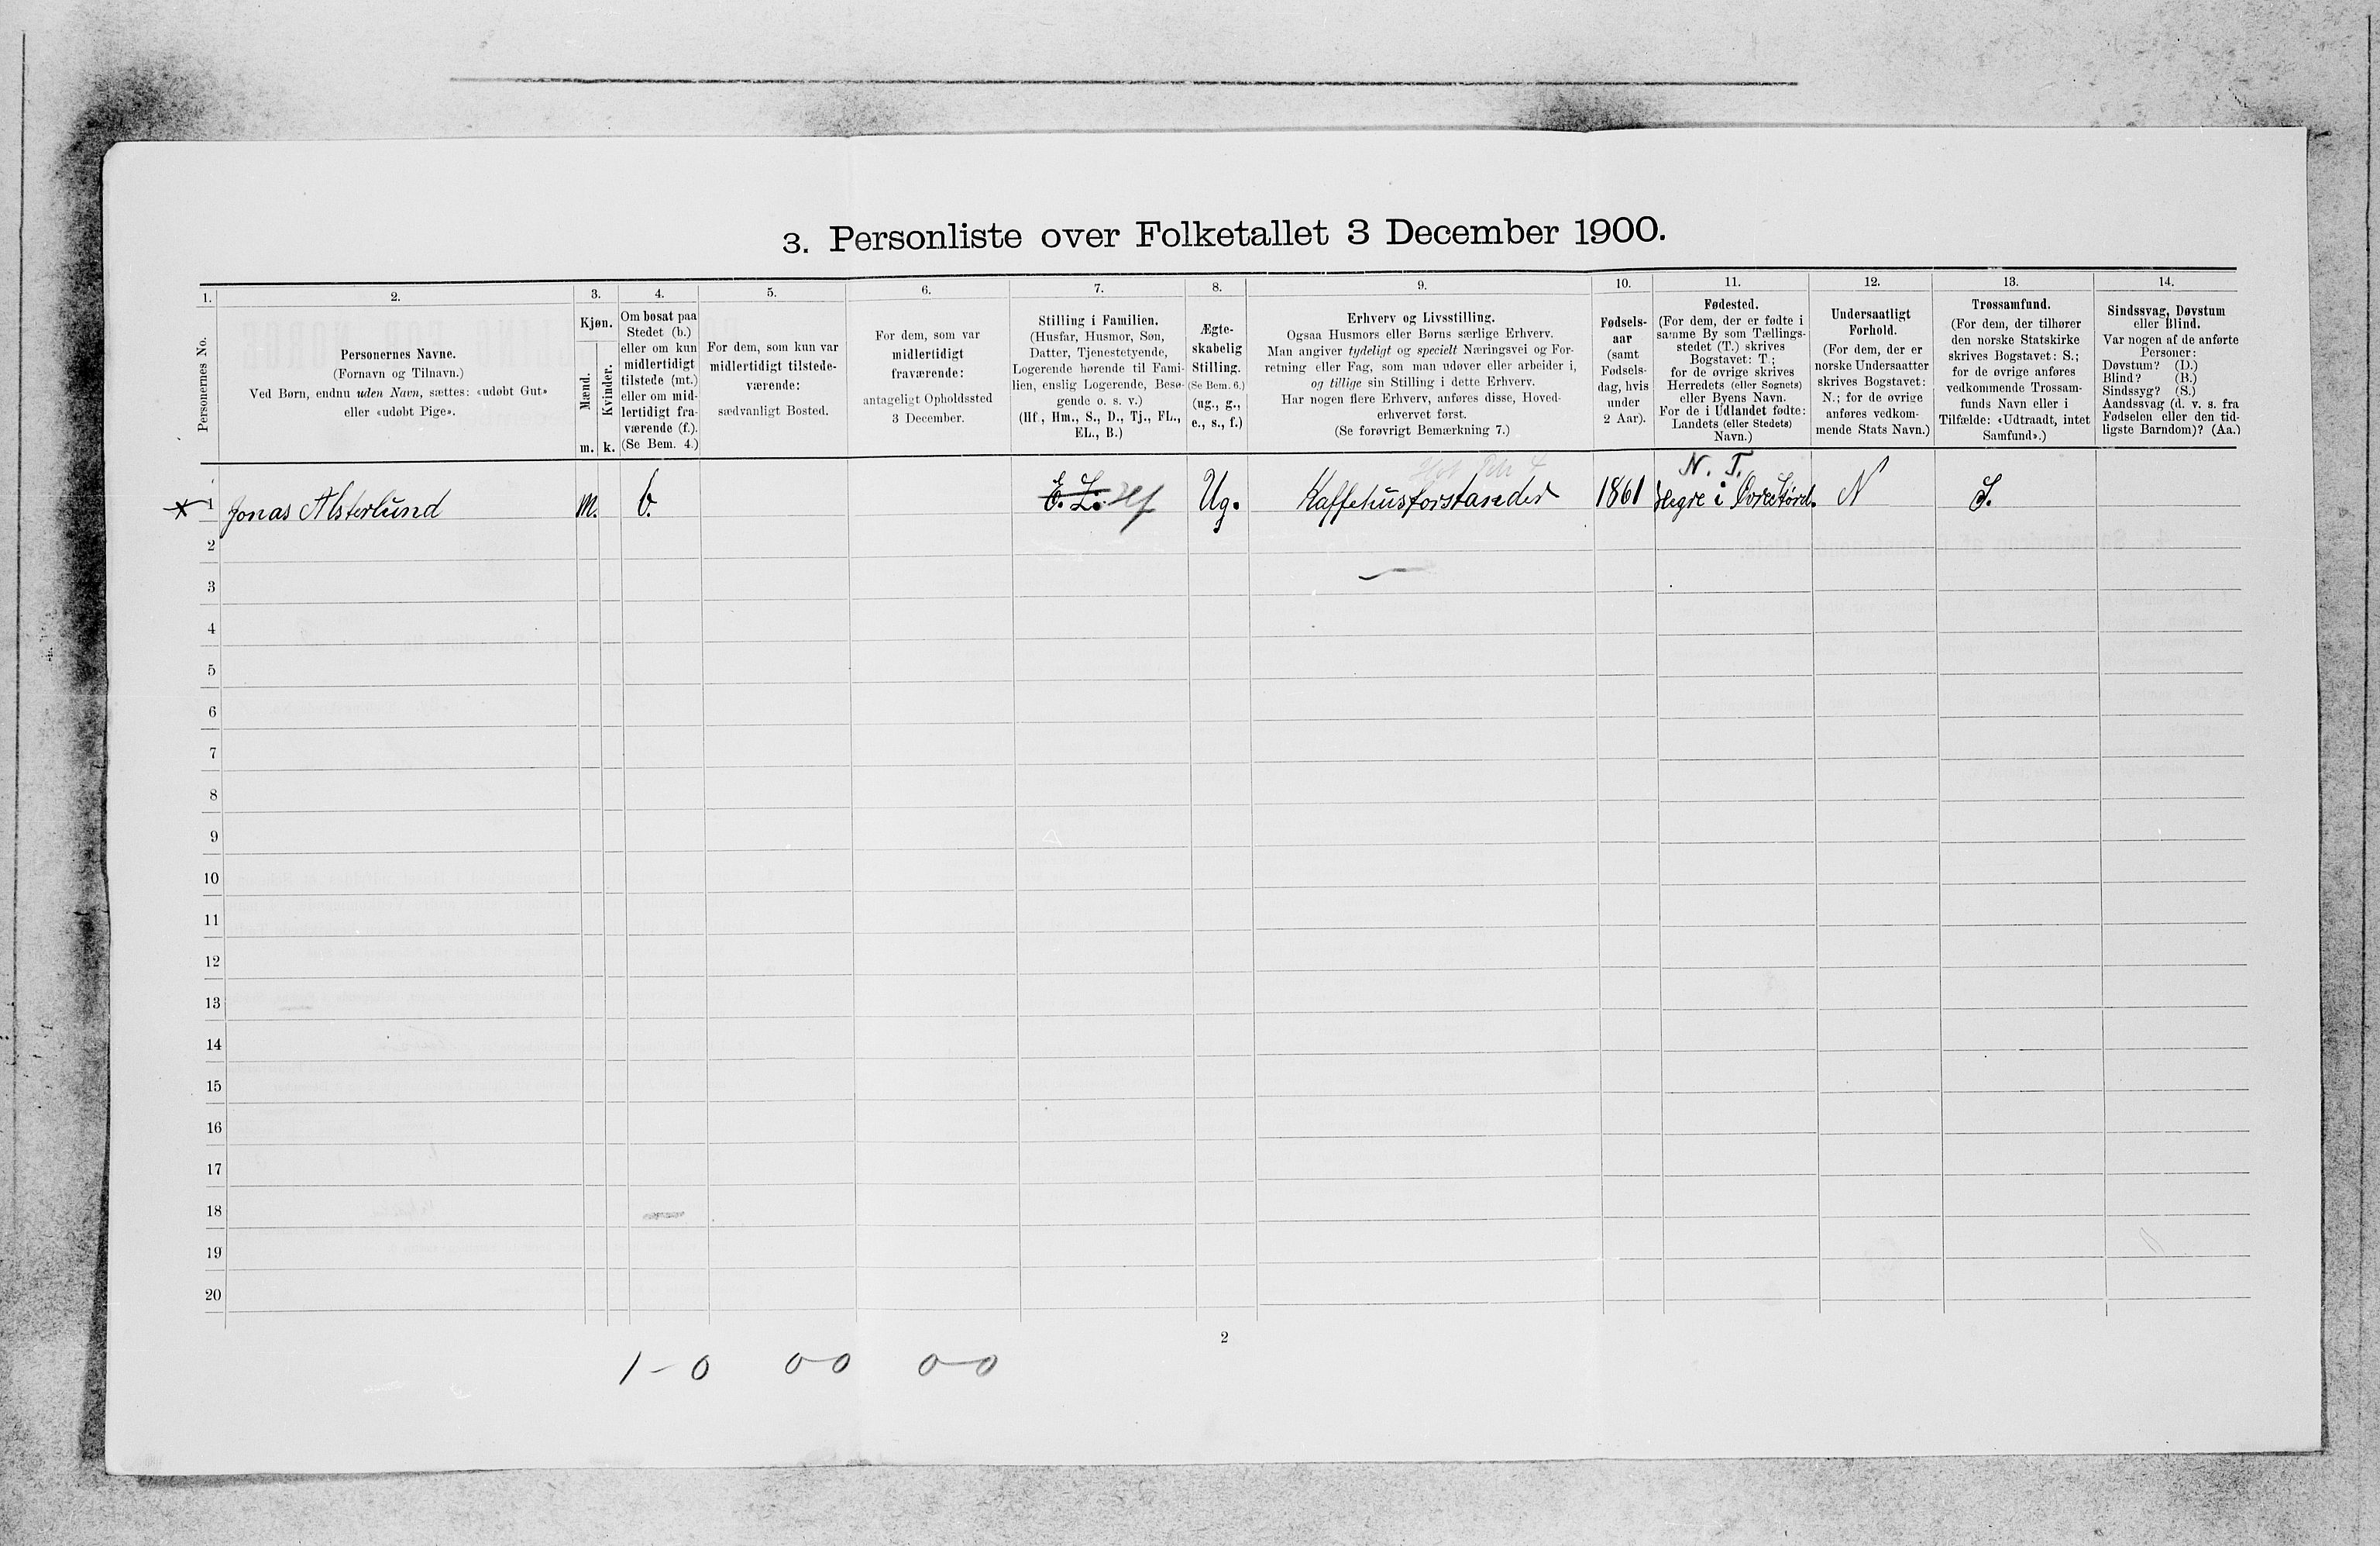 3. Personliste over Folketallet 3 December 1900.
1. 2. 3. 4. 5. 6. 7. 8. 9. 10. 11. 12. 13. 14.
Personernes No.
Personernes Navne.
(Fornavn og Tilnavn.)
Ved Børn, endnu uden Navn, sættes: «udøbt Gut»
eller «udøbt Pige».
Kjøn.
Mænd.
Kvinder.
m. k.
Om bosat paa
Stedet (b.)
eller om kun
midlertidigt
tilstede (mt.)
eller om mid-
lertidigt fra-
værende (f.).
(Se Bem. 4.)
For dem, som kun var
midlertidigt tilstede-
værende:
sædvanligt Bosted.
For dem, som var
midlertidigt
fraværende:
antageligt Opholdssted
3 December.
Stilling i Familien.
(Husfar, Husmor, Søn,
Datter, Tjenestetyende,
Logerende hørende til Fami-
lien, enslig Logerende, Besø-
gende o. s. v.)
(Hf., Hm., S., D., Tj., FL.,
EL., B.)
Ægte-
skabelig
Stilling.
(Se Bem. 6.)
(ug., g.,
e., s., f.)
Erhverv og Livsstilling.
Ogsaa Husmors eller Børns særlige Erhverv.
Man angiver tydeligt og specielt Næringsvei og For-
retning eller Fag, som man udøver eller arbeider i,
og tillige sin Stilling i dette Erhverv.
Har nogen flere Erhverv, anføres disse, Hoved-
erhvervet først.
(Se forøvrigt Bemærkning 7.)
Fødsels-
aar
(samt
Fødsels-
dag, hvis
under
2 Aar).
Fødested.
(For dem, der er fødte i
samme By som Tællings-
stedet (T.) skrives
Bogstavet: T.;
for de øvrige skrives
Herredets (eller Sognets)
eller Byens Navn.
For de i Udlandet fødte:
Landets (eller Stedets)
Navn.)
Undersaatligt
Forhold.
(For dem, der er
norske Undersaatter
skrives Bogstavet:
N.; for de øvrige
anføres vedkom-
mende Stats Navn.)
Trossamfund.
(For dem, der tilhører
den norske Statskirke
skrives Bogstavet: S.;
for de øvrige anføres
vedkommende Trossam-
funds Navn eller i
Tilfælde: «Udtraadt, intet
Samfund».)
Sindssvag, Døvstum
eller Blind.
Var nogen af de anførte
Personer:
Døvstum? (D.)
Blind? (B.)
Sindssyg? (S.)
Aandssvag (d. v. s. fra
Fødselen eller den tid-
ligste Barndom)? (Aa.)
N. T.
1 Jonas Alsterlund m. b. E. L. Hf Ug. Kaffehusforstander 1861 Hegre i Øvre Størd. N S.
2
3
4
5
6
7
8
9
10
11
12
13
14
15
16
17
18
19
20
2
1-0 0-0 0-0